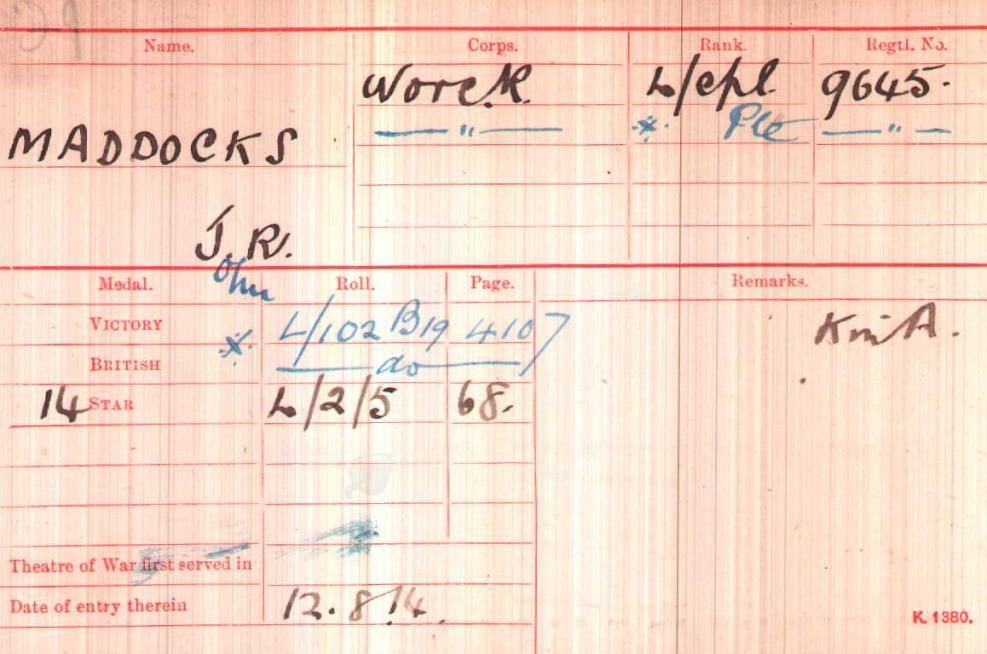 Name. Corps. Rank. Regtl. No.
Worc.R. L/Cpl. 9645.
—"— * Pte —"—
MADDOCKS
J.R.
ohn
Medal. Roll. Page. Remarks.
VICTORY * L/102 B19 4107 K in A.
BRITISH —do—
14 STAR L/2/5 68.
Theatre of War first served in
Date of entry therein 12.8.14.
K. 1380.